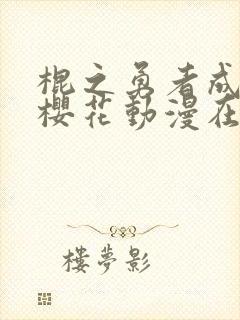 棍之勇者成
櫻花動漫在
樓夢影